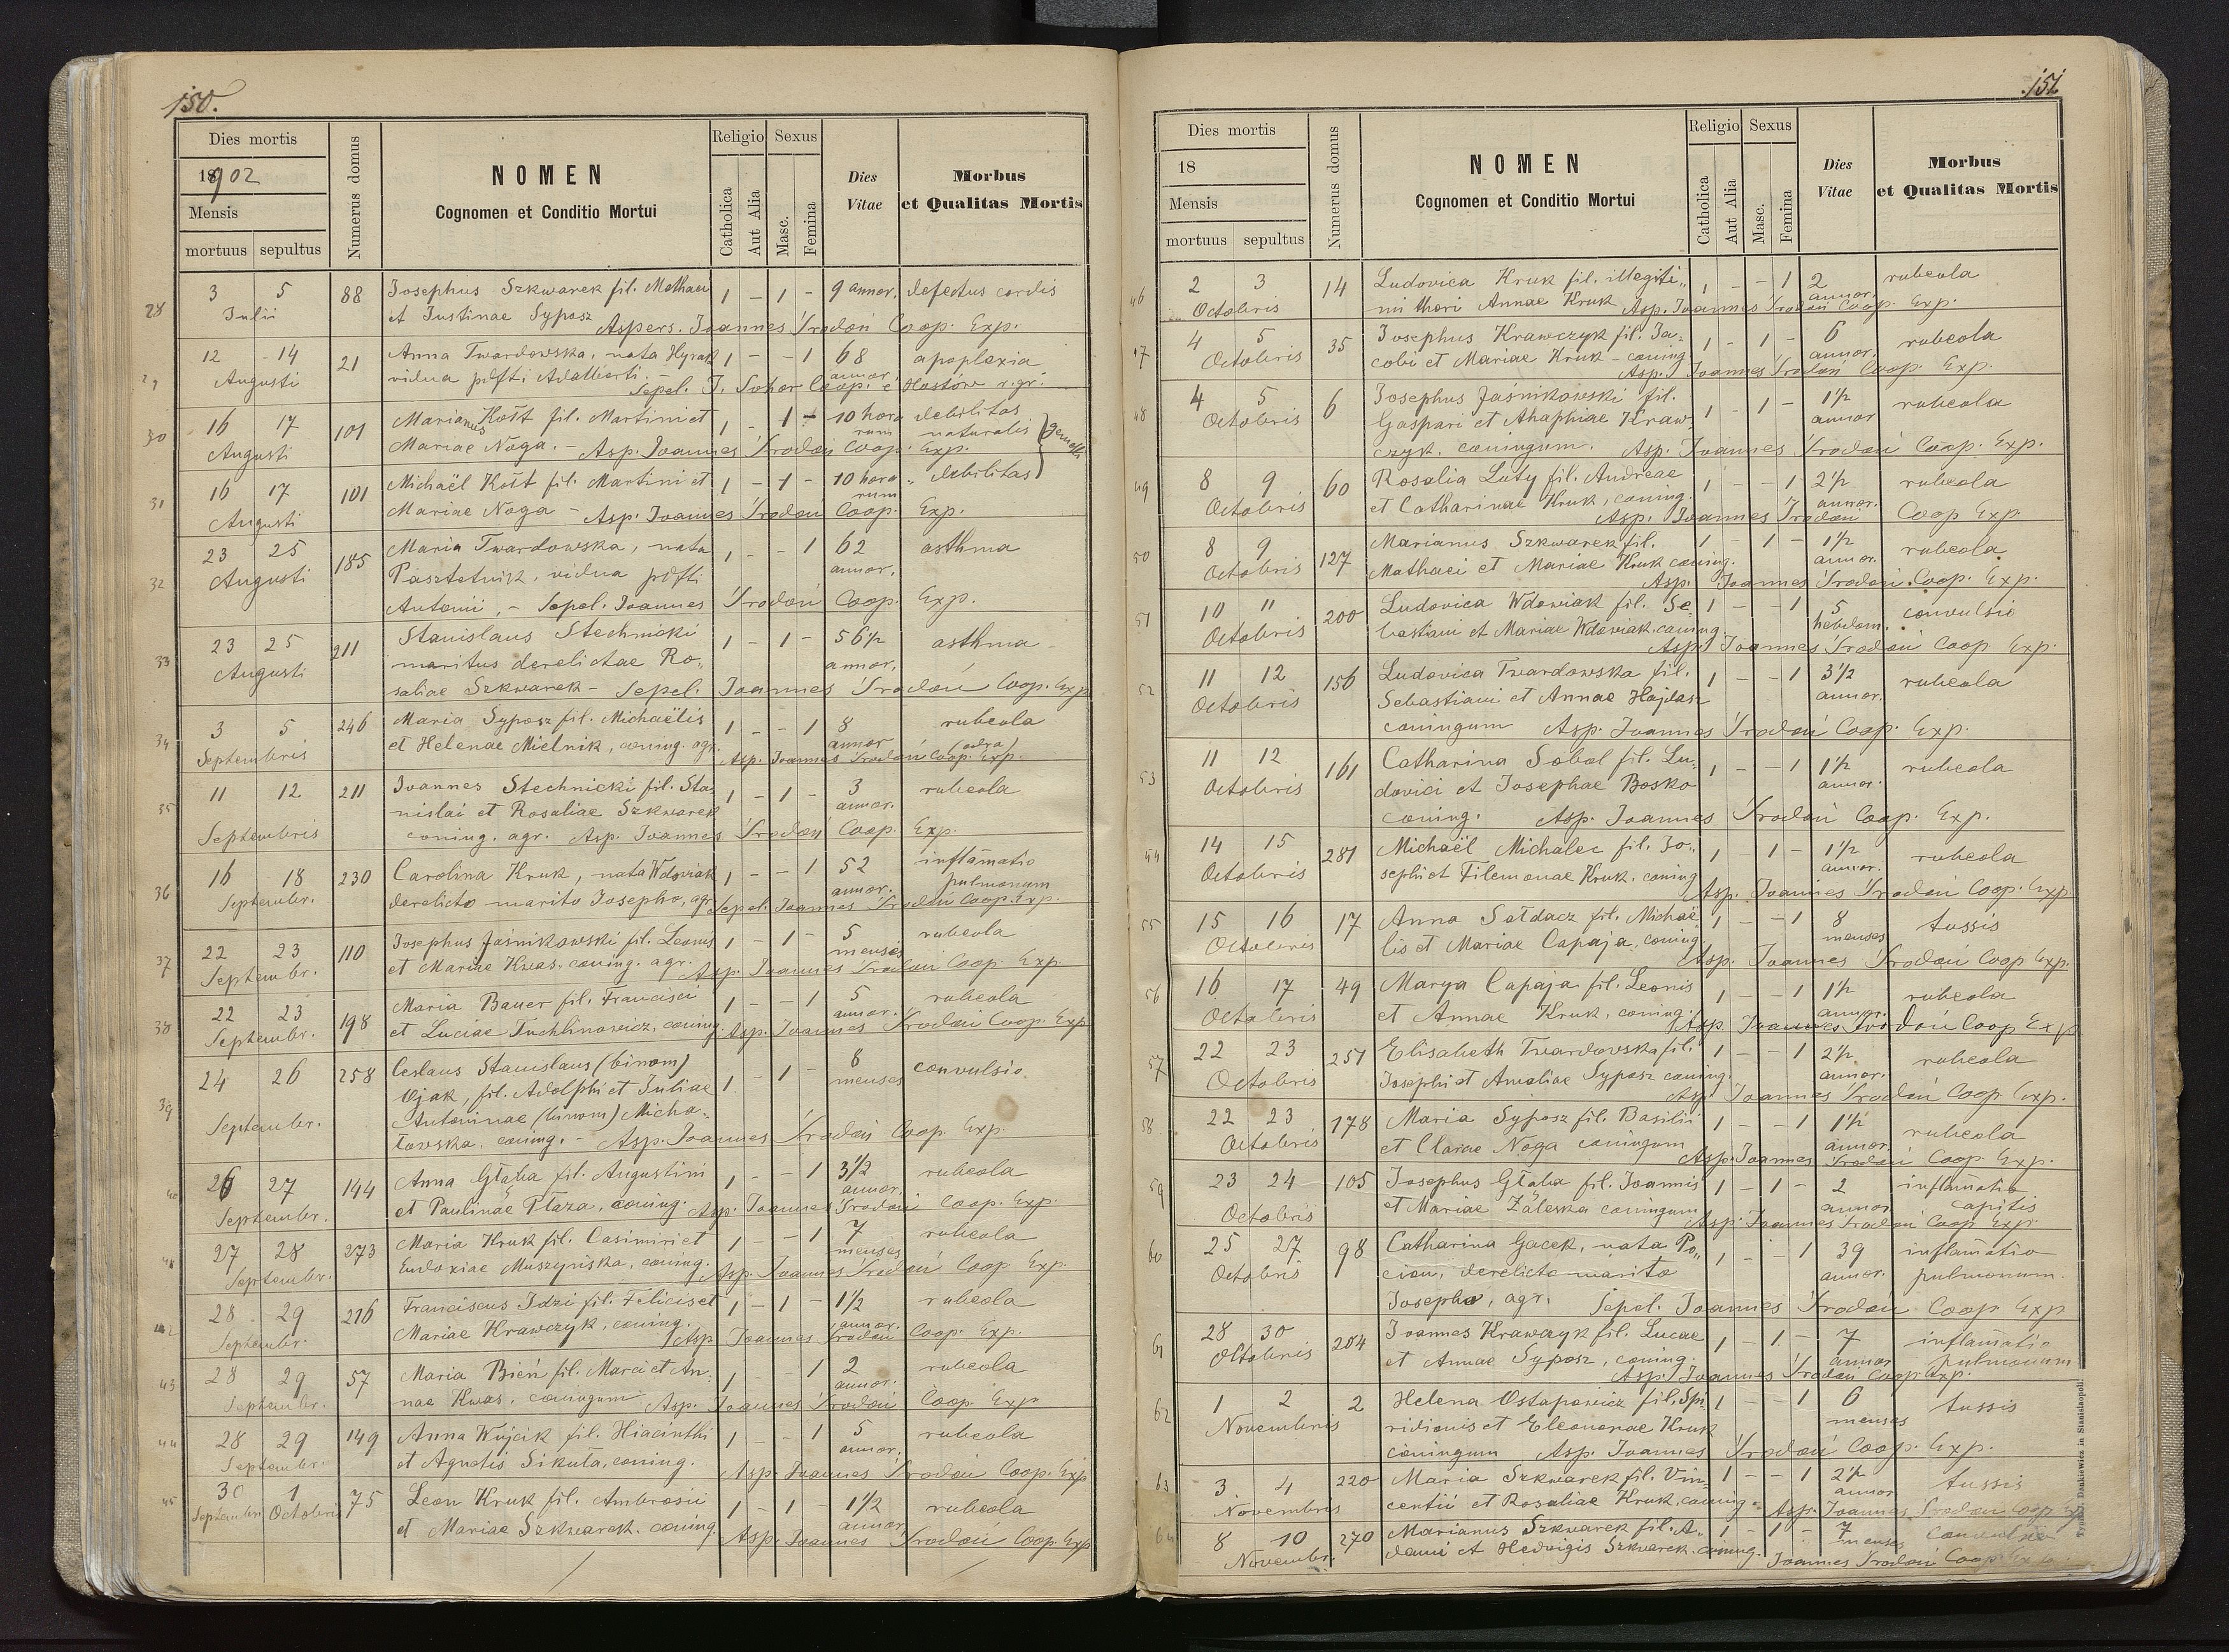 150.
Dies mortis
1902
Mensis
mortuus sepultus
Numerus domus
NOMEN
Cognomen et Conditio Mortui
Religio
Catholica
Aut Alia
Sexus
Masc.
Femina
Dies
Vitae
Morbus
et Qualitas Mortis
28 3 5 88 Josephus Szkwarek fil. Mathaei 1 – 1 – 9 annor. defectus cordis
Julii et Justinae Syposz Aspers. Joannes Środoń Coop. Exp.
29 12 14 21 Anna Twardowska, nata Hyrak 1 – – 1 68 apoplexia
Augusti vidua pdfti Adalberti. – annor.
Sepel. J. Sohor Coop. e Hostów r. gr.
30 16 17 101 Marianus Kośt fil. Martini et 1 – 1 – 10 hora debilitas
Augusti Mariae Noga. – rum naturalis gemelli
Asp. Joannes Środoń Coop. Exp.
31 16 17 101 Michaël Kośt fil. Martini et 1 – 1 – 10 hora „ debilitas
Augusti Mariae Noga – rum
Asp. Joannes Środoń Coop. Exp.
32 23 25 185 Maria Twardowska, nata 1 – – 1 62 asthma
Augusti Pasztetnik, vidua pdfti annor.
Antonii, – Sepel. Joannes Środoń Coop. Exp.
33 23 25 211 Stanislaus Stechnicki 1 – 1 – 56 1/2 asthma
Augusti maritus derelictae Ro„ annor.
saliae Szkwarek – Sepel. Joannes Środoń Coop. Exp
34 3 5 246 Maria Syposz fil. Michaëlis 1 – – 1 8 rubeola
Septembris et Helenae Mielnik, coning. agr. annor (odra)
Asp. Joannes Środoń Coop. Exp.
35 11 12 211 Joannes Stechnicki fil. Sta„ 1 – 1 – 3 rubeola
Septembris nislai et Rosaliae Szkwarek annor.
coning. agr. Asp. Joannes Środoń Coop. Exp.
36 16 18 230 Carolina Kruk, nata Wdowiak 1 – – 1 52 inflam̄atio
Septembr. derelicto marito Josepho, agr. annor. pulmonum
Sepel. Joannes Środoń Coop. Exp.
37 22 23 110 Josephus Jaśnikowski fil. Leonis 1 – 1 – 5 rubeola
Septembr. et Mariae Kwas, coning. agr. menses
Asp. Joannes Środoń Coop. Exp.
38 22 23 198 Maria Bauer fil. Francisci 1 – – 1 5 rubeola
Septembr. et Luciae Tuchlinowicz, coning. annor.
Asp. Joannes Środoń Coop. Exp
39 24 26 258 Ceslaus Stanislaus (binom) 1 – 1 – 8 convulsio.
Ojak, fil. Adolphi et Juliae menses
Septembr. Antoninae (binom) Micha„
łowska, coning. – Asp. Joannes Środoń Coop. Exp.
40 26 27 144 Anna Głąba fil. Augustini 1 – 1 3 1/2 rubeola
Septembr. et Paulinae Płaza, coning. annor.
Asp. Joannes Środoń Coop. Exp.
41 27 28 273 Maria Kruk fil. Casimiri et 1 – – 1 7 rubeola
Septembr. Eudoxiae Muszyńska, coning. menses
Asp. Joannes Środoń Coop Exp.
42 28 29 216 Franciscus Idzi fil. Felicis et 1 – 1 – 1 1/2 rubeola
Septembr. Mariae Krawczyk, coning. annor.
Asp Joannes Środoń Coop. Exp.
43 28 29 57 Maria Bień fil. Marci et An„ 1 – 1 2 rubeola
Septembr. nae Kwas, coniugum annor.
Asp. Joannes Środoń Coop Exp
44 28 29 149 Anna Wójcik fil. Hiacinthi 1 – – 1 5 rubeola
Septembr. et Agnetis Sikuła, coning. annor.
Asp. Joannes Środoń Coop. Exp
45 30 1 75 Leon Kruk fil. Ambrosii 1 – 1 – 1 1/2 rubeola
Septembr. Octobris et Mariae Szkwarek. coning annor.
Asp. Joannes Środoń Coop. Exp
151.
Dies mortis
18
Mensis
mortuus sepultus
Numerus domus
NOMEN
Cognomen et Conditio Mortui
Religio
Catholica
Aut Alia
Sexus
Masc.
Femina
Dies
Vitae
Morbus
et Qualitas Mortis
46 2 3 14 Ludovica Kruk fil. illegiti„ 1 – – 1 2 rubeola
Octobris mi thori Annae Kruk annor.
Asp. Joannes Środoń Coop. Exp.
47 4 5 35 Josephus Krawczyk fil. Ja„ 1 – 1 – 6 rubeola
Octobris cobi et Mariae Kruk – coning annor.
Asp. Joannes Środoń Coop. Exp.
48 4 5 6 Josephus Jaśnikowski fil. 1 – 1 – 1 1/2 rubeola
Octobris Gaspari et Ahaphiae Kraw„ annor
czyk. coniugum. Asp. Joannes Środoń Coop. Exp.
49 8 9 60 Rosalia Luty fil. Andreae 1 – – 1 2 1/2 rubeola
Octobris et Catharinae Kruk, coning. annor.
Asp. Joannes Środoń Coop Exp.
50 8 9 127 Marianus Szkwarek fil. 1 – 1 – 1 1/2 rubeola
Octobris Mathaei et Mariae Kruk coning. annor.
Asp. Joannes Środoń Coop. Exp.
51 10 11 200 Ludovica Wdowiak fil. Se„ 1 – 1 5 convulsio
Octobris bastiani et Mariae Wdowiak. coning hebdom.
Asp. Joannes Środoń Coop Exp.
52 11 12 156 Ludovica Twardowska fil. 1 – – 1 3 1/2 rubeola
Octobris Sebastiani et Annae Hajdasz annor.
coniugum Asp. Joannes Środoń Coop. Exp.
53 11 12 161 Catharina Sobol fil. Lu„ 1 – – 1 1 1/2 rubeola
Octobris dovici et Josephae Bosko annor.
coning. Asp. Joannes Środoń Coop. Exp.
54 14 15 281 Michaël Michalec fil. Jo„ 1 – 1 – 1 1/2 rubeola
Octobris sephi et Filemonae Kruk. coning annor.
Asp. Joannes Środoń Coop. Exp.
55 15 16 17 Anna Sałdacz fil. Michaë 1 – – 1 8 tussis
Octobris lis et Mariae Capaja, coning. menses
Asp. Joannes Środoń Coop Exp.
56 16 17 49 Marya Capaja fil. Leonis 1 – – 1 1 1/2 rubeola
Octobris et Annae Kruk, coning. annor.
Asp Joannes Środoń Coop Exp
57 22 23 251 Elisabeth Twardowska fil. 1 – – 1 2 1/2 rubeola
Octobris Josephi et Amaliae Syposz coning. annor.
Asp. Joannes Środoń Coop. Exp.
58 22 23 178 Maria Syposz fil. Basilii 1 – – 1 1 1/2 rubeola
Octobris et Clarae Noga coniugum annor
Asp. Joannes Środoń Coop. Exp.
59 23 24 105 Josephus Głąba fil. Joannis 1 – 1 – 2 inflam̄atio
Octobris et Mariae Zaleska coniugum annor capitis
Asp. Joannes Środoń Coop Exp.
60 25 27 98 Catharina Gacek, nata Po„ 1 – – 1 39 inflam̄atio
Octobris cion, derelicto marito annor. pulmonum.
Josepho, agr. Sepel. Joannes Środoń Coop Exp
61 28 30 204 Joannes Krawczyk fil. Lucae 1 – 1 – 7 inflam̄atio
Octobris et Annae Syposz, coning. annor pulmonum
Asp. Joannes Środoń Coop Exp.
62 1 2 2 Helena Ostapowicz fil. Spi„ 1 – – 1 6 tussis
Novembris ridionis et Eleonorae Kruk menses
coniugum Asp. Joannes Środoń Coop. Exp.
63 3 4 220 Maria Szkwarek fil. Vin„ 1 – – 1 2 1/2 tussis
Novembris centii et Rosaliae Kruk, coning. annor
Asp. Joannes Środoń Coop Exp
64 8 10 270 Marianus Szkwarek fil. A„ 1 – 1 – 7 convulsio
Novembr. dami et Hedvigis Szkwarek. coning. menses
Joannes Środoń Coop Exp.
Typis J. Dankiewicz in Stanislaopoli.